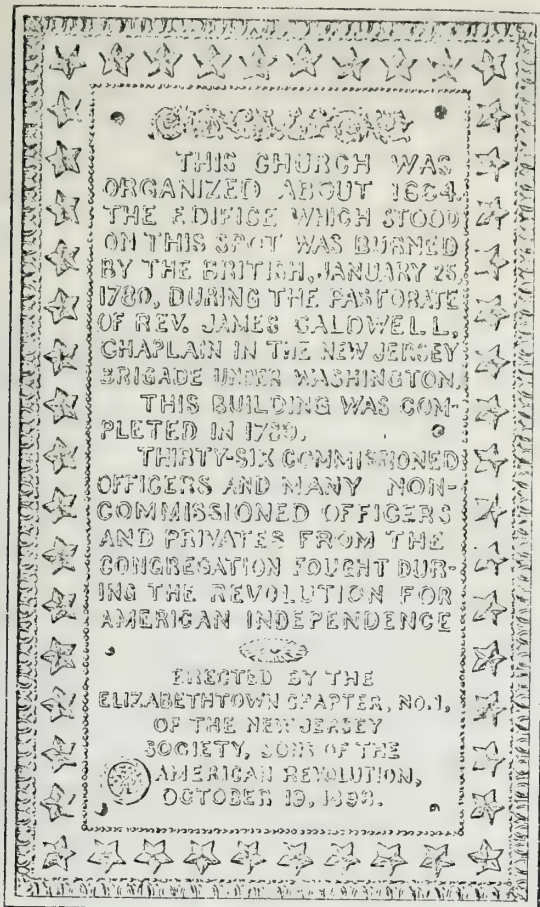 THIS CHURCH WAS
ORGANIZED ABOUT 1664.
THE EDIFICE WHICH STOOD
ON THIS SPOT WAS BURNED
BY THE BRITISH, JANUARY 25,
1780, DURING THE PASTORATE
OF REV. JAMES CALDWELL,
CHAPLAIN IN THE NEW JERSEY
BRIGADE UNDER WASHINGTON.
THIS BUILDING WAS COM-
PLETED IN 1789.
THIRTY-SIX COMMISSIONED
OFFICERS AND MANY NON-
COMMISSIONED OFFICERS
AND PRIVATES FROM THE
CONGREGATION FOUGHT DUR-
ING THE REVOLUTION FOR
AMERICAN INDEPENDENCE
ERECTED BY THE
ELIZABETHTOWN CHAPTER, NO.1,
OF THE NEW JERSEY
SOCIETY, SONS OF THE
AMERICAN REVOLUTION,
OCTOBER 19,